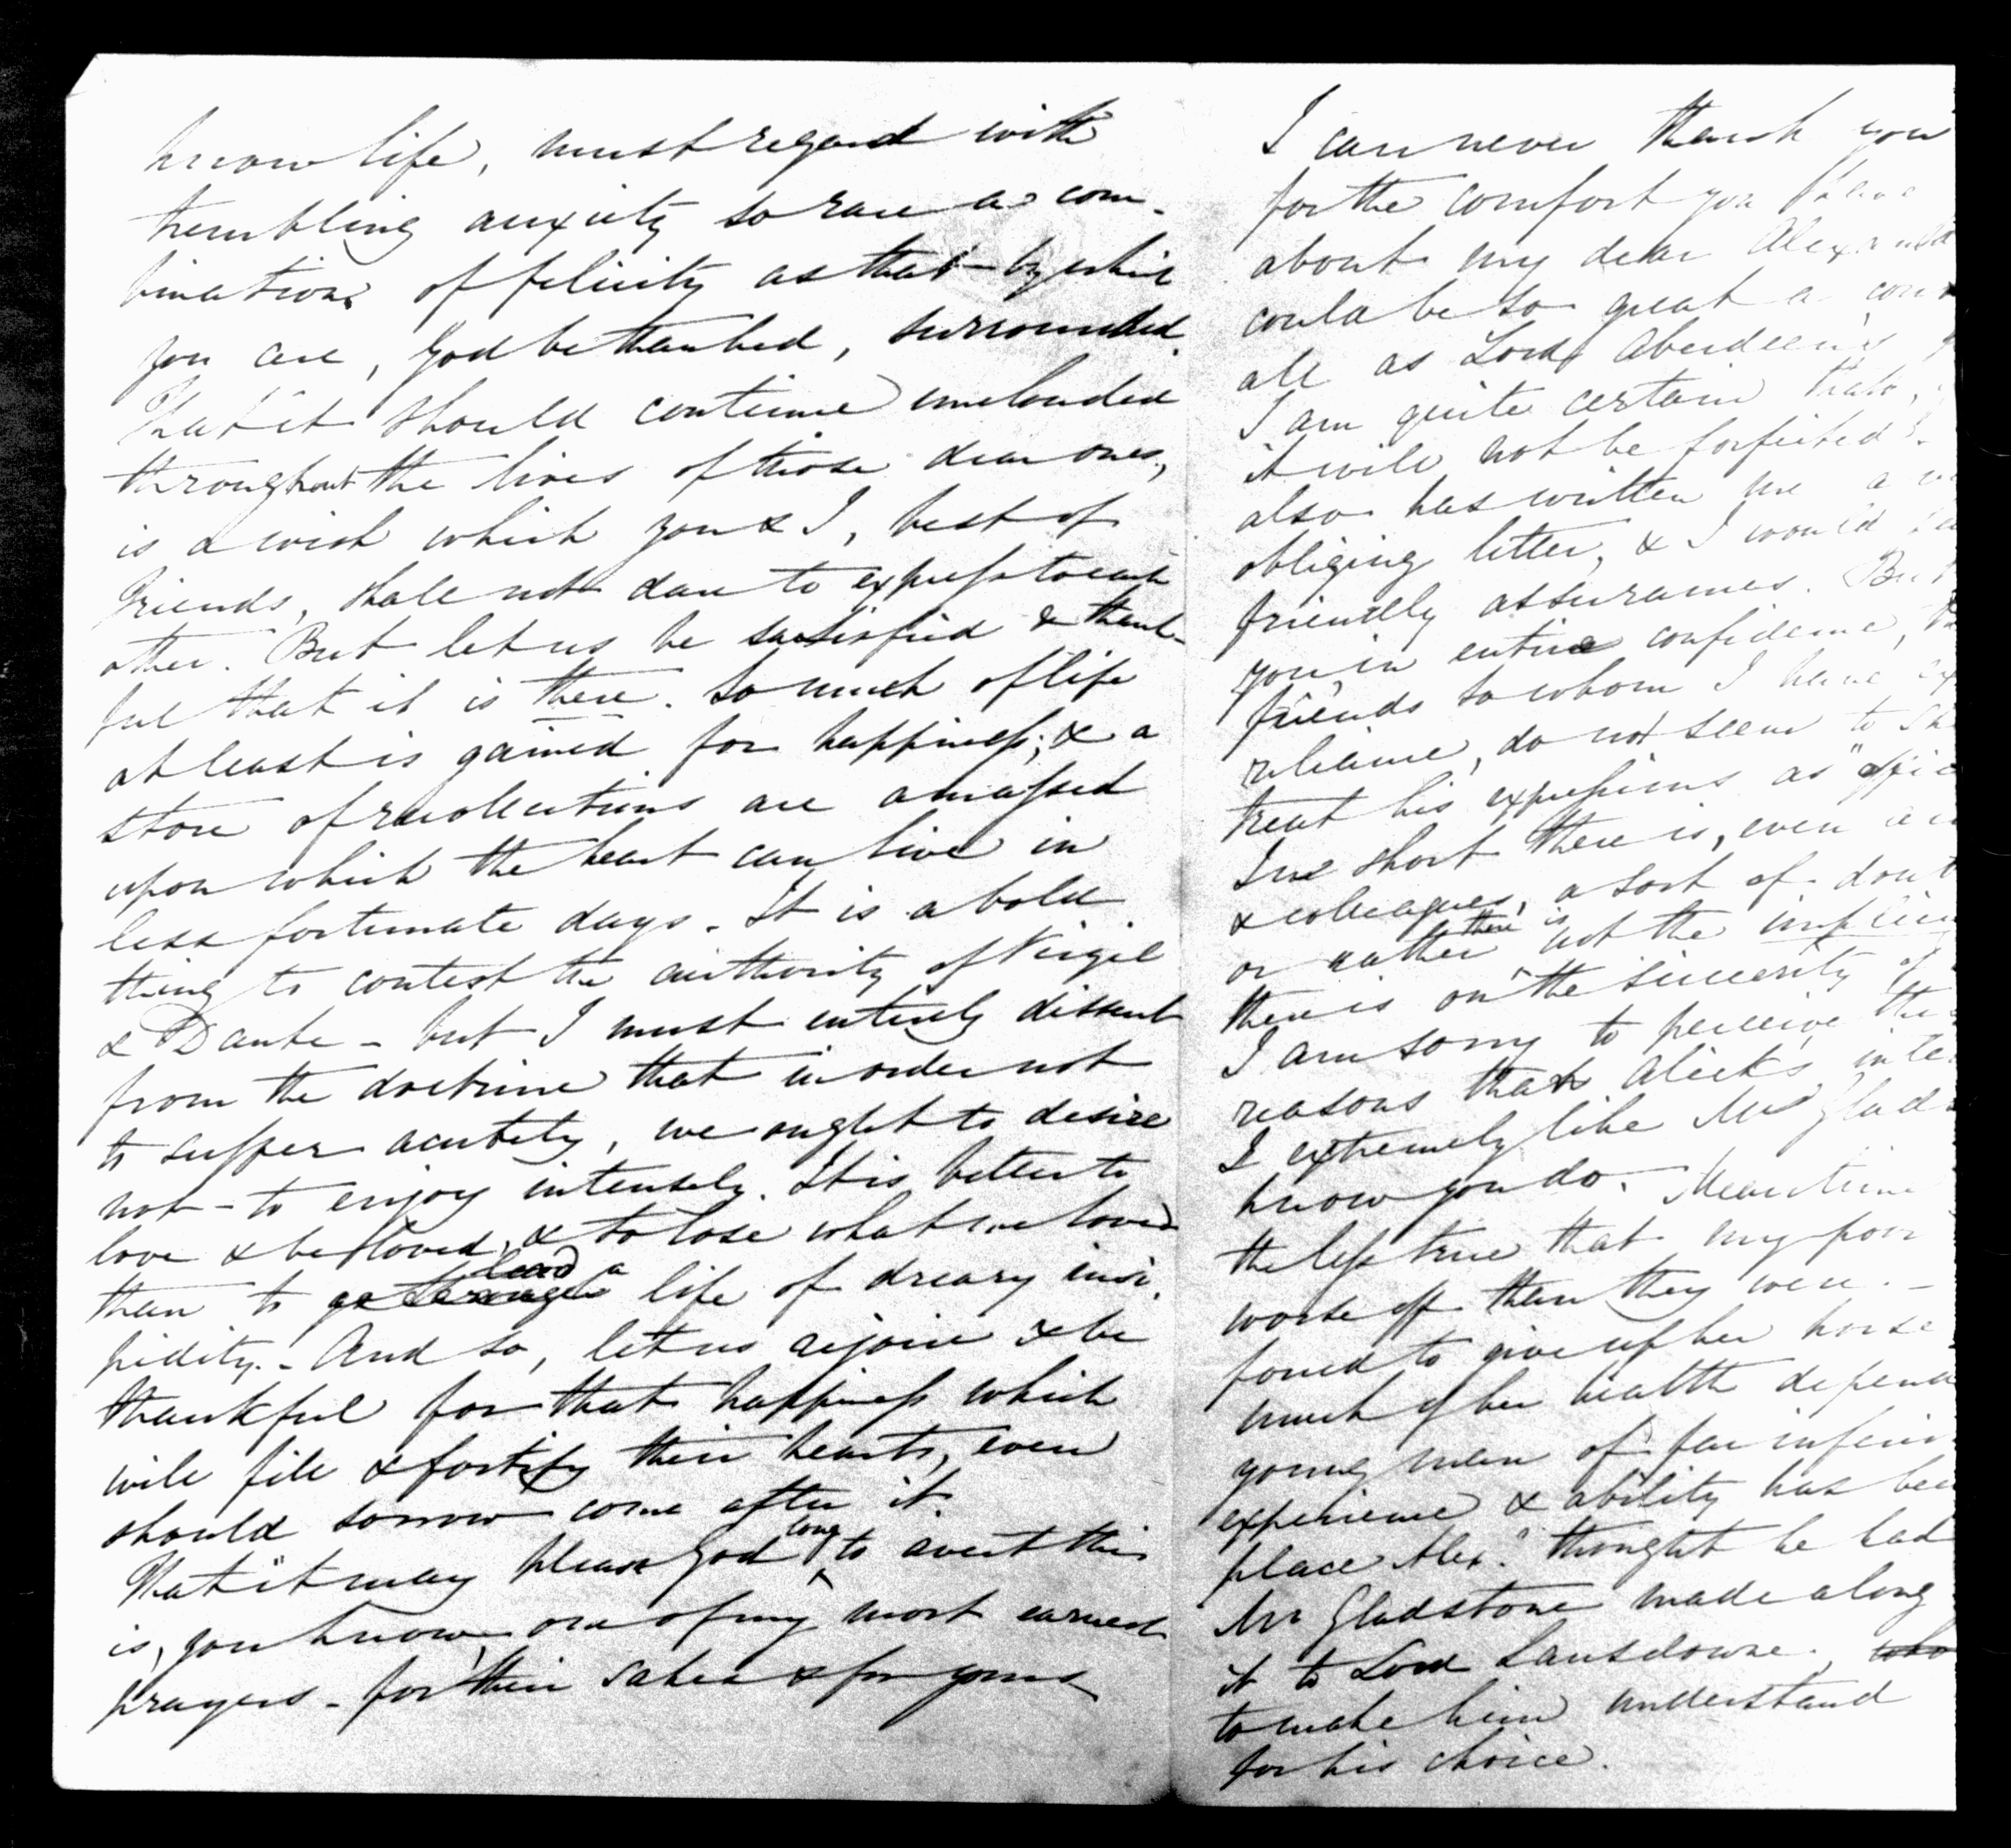 know life, must regard with
trembling anxiety so rare a com-
bination of felicity as that by which
you are, God be thanked, surrounded.
That it should continue unclouded
throughout the lives of those dear ones,
is a wish which you & I, best of
friends, shall not dare to express to each
other. But let us be satisfied & thank-
ful that it is there. So much of life
at least is gained for happiness; & a
store of recollections are amassed
upon which the heart can live in
less fortunate days. It is a bold
thing to contest the authority of Virgil
& Dante - but I must entirely dissent
from the doctrine that in order not
to suffer acutely, we ought to desire
not - to enjoy intensely. It is better to
love & be loved, & to lose what we loved
than to lead a life of dreary insi-
pidity. - And so, let us rejoice & be
thankful for that happiness which
will fill & fortify their hearts, even
should sorrow come after it.
That it may please God long to avert this
is, you know, one of my most earnest
prayers - for their sakes & for yours
I can never thank you
for the comfort you have
about my dear
could be so great a
all as Lord Aberdeen's
I am quite certain that,
it will not be forfeited.
also has written me a
obliging letter, & I would
friendly assurances. But
you in entire confidence,
friends to whom I have
reliance, do not seem to
treat his expressions as
In short there is, even
& colleagues, a sort of
or rather there is not the
there is on the sincerity of
I am sorry to perceive
reasons that Alick's
I extremely like Mr
know you do. Meantime
the less true that my poor
worse off than they were. -
forced to give up her horse
much of her health
young man of far
experience & ability has been
place Alex. thought he had
Mr Gladstone made along
it to Lord Lansdowne. who
to make him understand
for his choice.